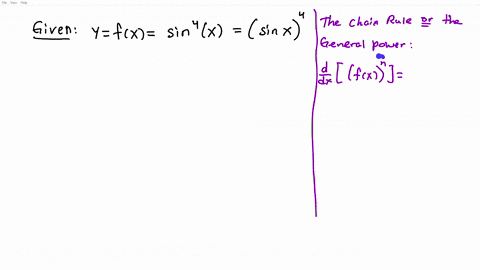 Given: y=f(x)= sin⁴(x) = (sin x)⁴
The Chain Rule or the
General power:
d/dx [ (f(x))ⁿ ] =